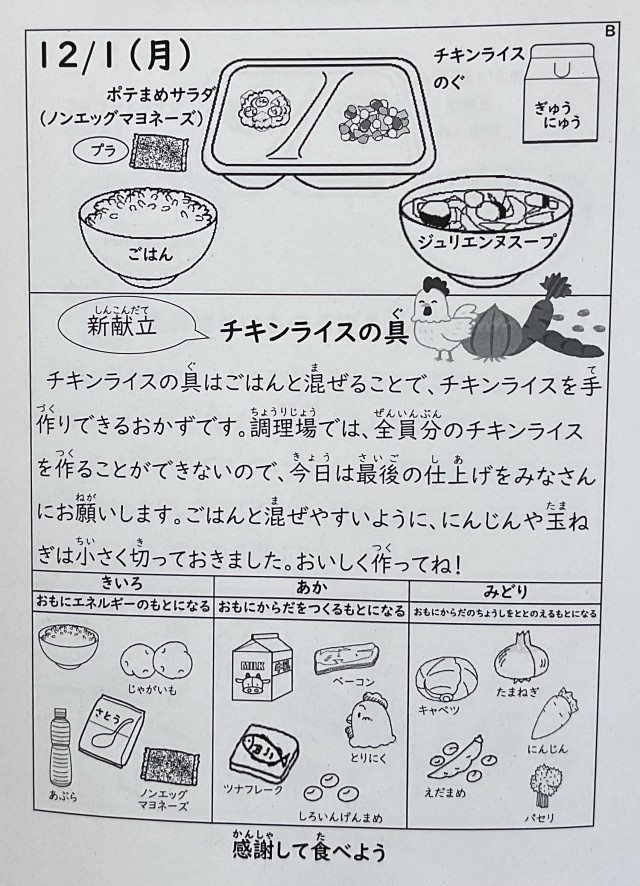 B
12/1(月)
チキンライス
のぐ
ポテまめサラダ
(ノンエッグマヨネーズ)
プラ
ぎゅう
にゅう
ごはん
ジュリエンヌスープ
しんこんだて
新献立
ぐ
チキンライスの具
ぐ ま て
チキンライスの具はごはんと混ぜることで、チキンライスを手
づく ちょうりじょう ぜんいんぶん
作りできるおかずです。調理場では、全員分のチキンライス
つく きょう さいご しあ
を作ることができないので、今日は最後の仕上げをみなさん
ねが ま たま
にお願いします。ごはんと混ぜやすいように、にんじんや玉ね
ちい き つく
ぎは小さく切っておきました。おいしく作ってね!
きいろ
おもにエネルギーのもとになる
じゃがいも
さとう
あぶら
ノンエッグ
マヨネーズ
あか
おもにからだをつくるもとになる
MILK
ベーコン
とりにく
ツナフレーク
しろいんげんまめ
みどり
おもにからだのちょうしをととのえるもとになる
キャベツ
たまねぎ
にんじん
えだまめ
パセリ
かんしゃ た
感謝して食べよう